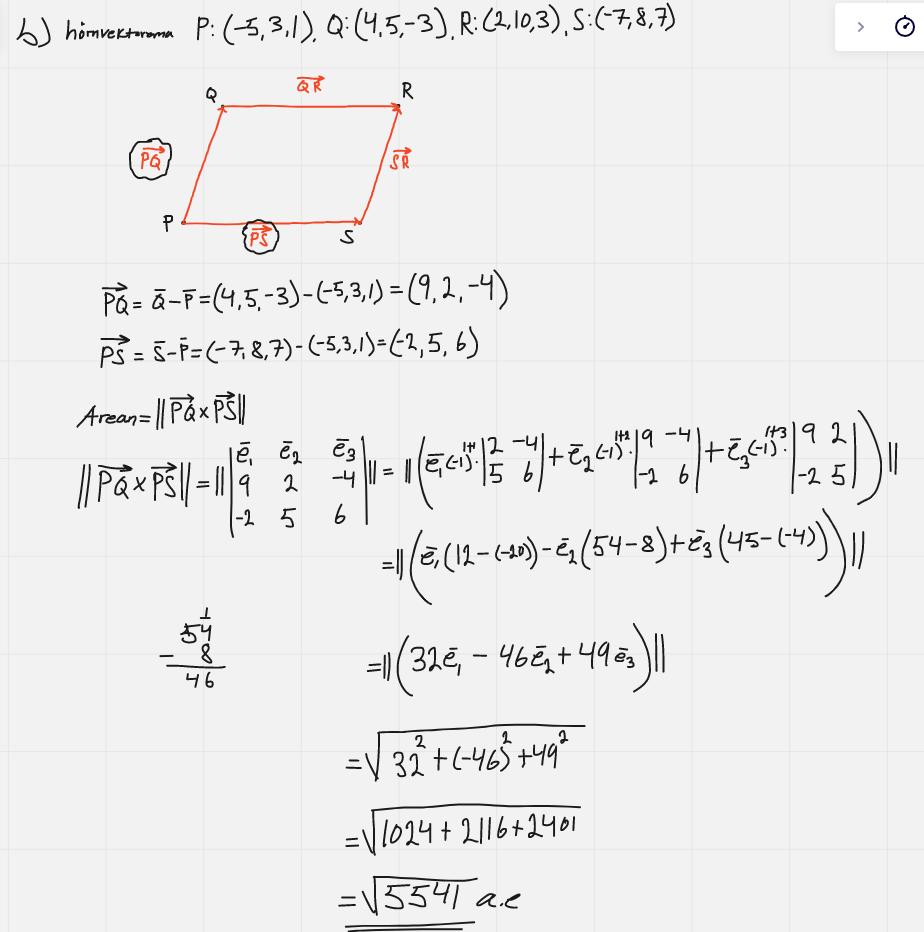 b) hörnvektorerna P:(-5,3,1), Q:(4,5,-3), R:(2,10,3), S:(-7,8,7)
Q QR R
PQ SR
P PS S
PQ = Q̄-P̄ = (4,5,-3)-(-5,3,1) = (9,2,-4)
PS = S̄-P̄ = (-7,8,7)-(-5,3,1) = (-2,5,6)
Arean = ||PQ×PS||
||PQ×PS|| = || |ē₁ ē₂ ē₃; 9 2 -4; -2 5 6| || = ||(ē₁(-1)¹⁺¹·|2 -4; 5 6| + ē₂(-1)¹⁺²·|9 -4; -2 6| + ē₃(-1)¹⁺³·|9 2; -2 5|)||
= ||(ē₁(12-(-20)) - ē₂(54-8) + ē₃(45-(-4)))||
1
54
- 8
46
= ||(32ē₁ - 46ē₂ + 49ē₃)||
= √32² + (-46)² + 49²
= √1024 + 2116 + 2401
= √5541 a.e